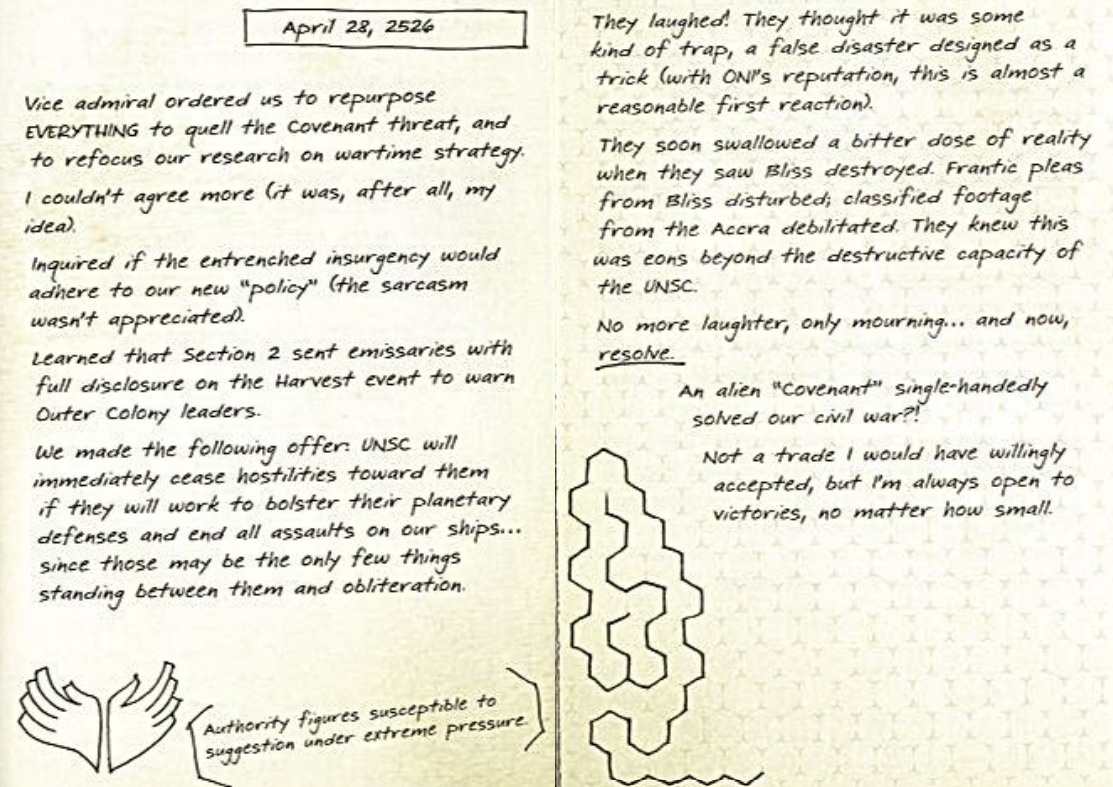 April 28, 2526
Vice admiral ordered us to repurpose
EVERYTHING to quell the Covenant threat, and
to refocus our research on wartime strategy.
I couldn't agree more (it was, after all, my
idea).
Inquired if the entrenched insurgency would
adhere to our new "policy" (the sarcasm
wasn't appreciated).
Learned that Section 2 sent emissaries with
full disclosure on the Harvest event to warn
Outer Colony leaders.
We made the following offer: UNSC will
immediately cease hostilities toward them
if they will work to bolster their planetary
defenses and end all assaults on our ships...
since those may be the only few things
standing between them and obliteration.
Authority figures susceptible to
suggestion under extreme pressure.
They laughed! They thought it was some
kind of trap, a false disaster designed as a
trick (with ONI's reputation, this is almost a
reasonable first reaction).
They soon swallowed a bitter dose of reality
when they saw Bliss destroyed. Frantic pleas
from Bliss disturbed; classified footage
from the Accra debilitated. They knew this
was eons beyond the destructive capacity of
the UNSC.
No more laughter, only mourning... and now,
resolve.
An alien "Covenant" single-handedly
solved our civil war?!
Not a trade I would have willingly
accepted, but I'm always open to
victories, no matter how small.